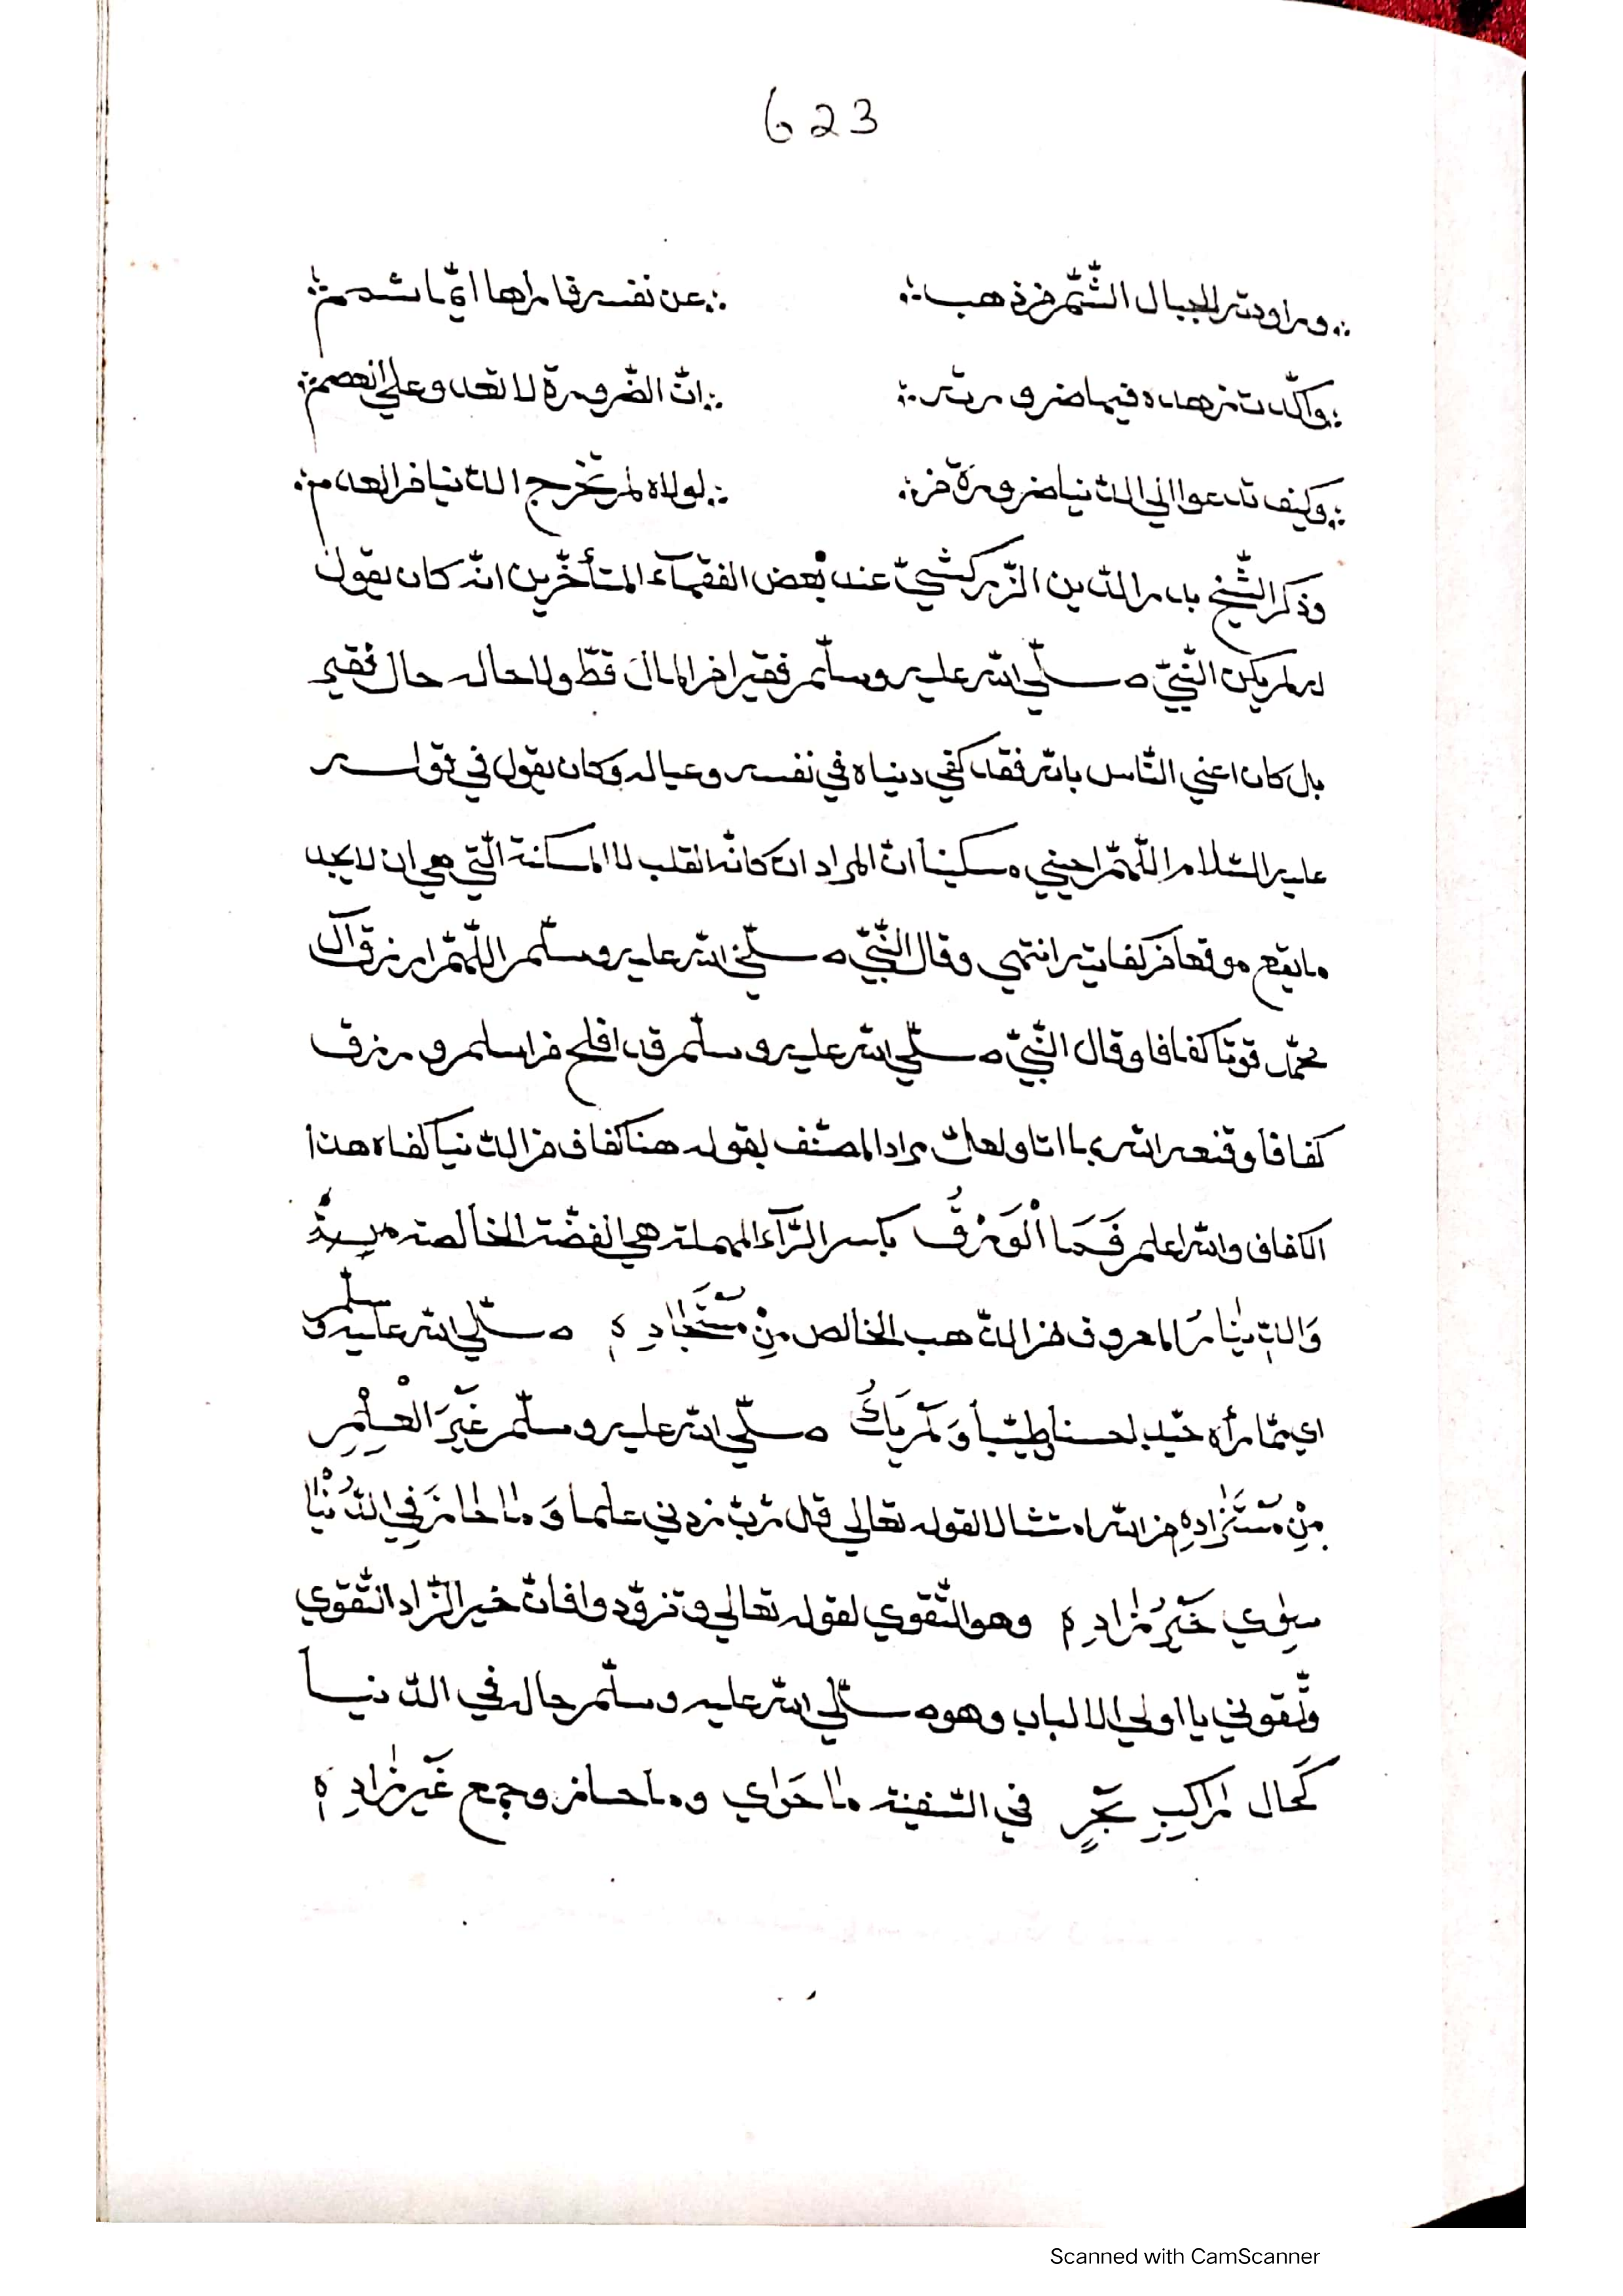 623
وراودته الجبال الشّمّ من ذهب ∴ ∴ عن نفسه فاراها ايّما شمم ∴
∴ واكّدت زهده فيها ضرورته ∴ ∴ انّ الضّرورة لا تعدو علي العصم ∴
∴ وكيف تدعوا الي الدّنيا ضرورة من ∴ ∴ لولاه لم تخرج الدّنيا من العدم ∴
وذكر الشّيخ بدر الدّين الزّركشيّ عند بعض الفقهآء المتأخّرين انّه كان يقول
لم يكن النّبيّ صلّي الله عليه وسلّم فقيرا من المال قطّ ولا حاله حال فقير
بل كان اغني النّاس بالله فقد كفي دنياه في نفسه وعياله وكان يقول في قوله
عليه السّلام اللّهمّ احيني مسكينا انّ المراد استكانة القلب لا المسكنة الّتي هي ان لا يجد
ما يقع موقعا من كفايته انتهي وقال النّبيّ صلّي الله عليه وسلّم اللّهمّ ارزق آل
محمّد قوتا كفافا وقال النّبيّ صلّي الله عليه وسلّم قد افلح من اسلم ورزق
كفافا وقنعه الله بما اتا ولعلّ مراد المصنّف بقوله هنا كفاف من الدّنيا كفاه هذا
الكفاف والله اعلم فَمَا الْوَرِقُ بكسر الرّآء المهملة هي الفضّة الخالصة
وَالدِّينَارُ المعروف من الذّهب الخالص مِنْ مُسْتَجَادِهِ صلّي الله عليه وسلّم
اي ممّا رأه جيّدا حسنا طيّبا وَلَمْ يَكُ صلّي الله عليه وسلّم غَيْرَ الْعِلْمِ
مِنْ مُسْتَزَادِهِ من الله امتثالا لقوله تعالي قل رّبّ زدني علما وَمَا حَازَ فِي الدُّنْيَا
سِوَي خَيْرِ زَادِهِ وهو التّقوي لقوله تعالي وتزوّدوا فانّ خير الزّاد التّقوي
وتّقوني يا اولي الالباب وهو صلّي الله عليه وسلّم حاله في الدّنيا
كَحال رَاكِبِ بَحْرٍ في السّفينة مَا حَوَاي وما حاز وجمع غَيْرَ زَادِهِ
Scanned with CamScanner